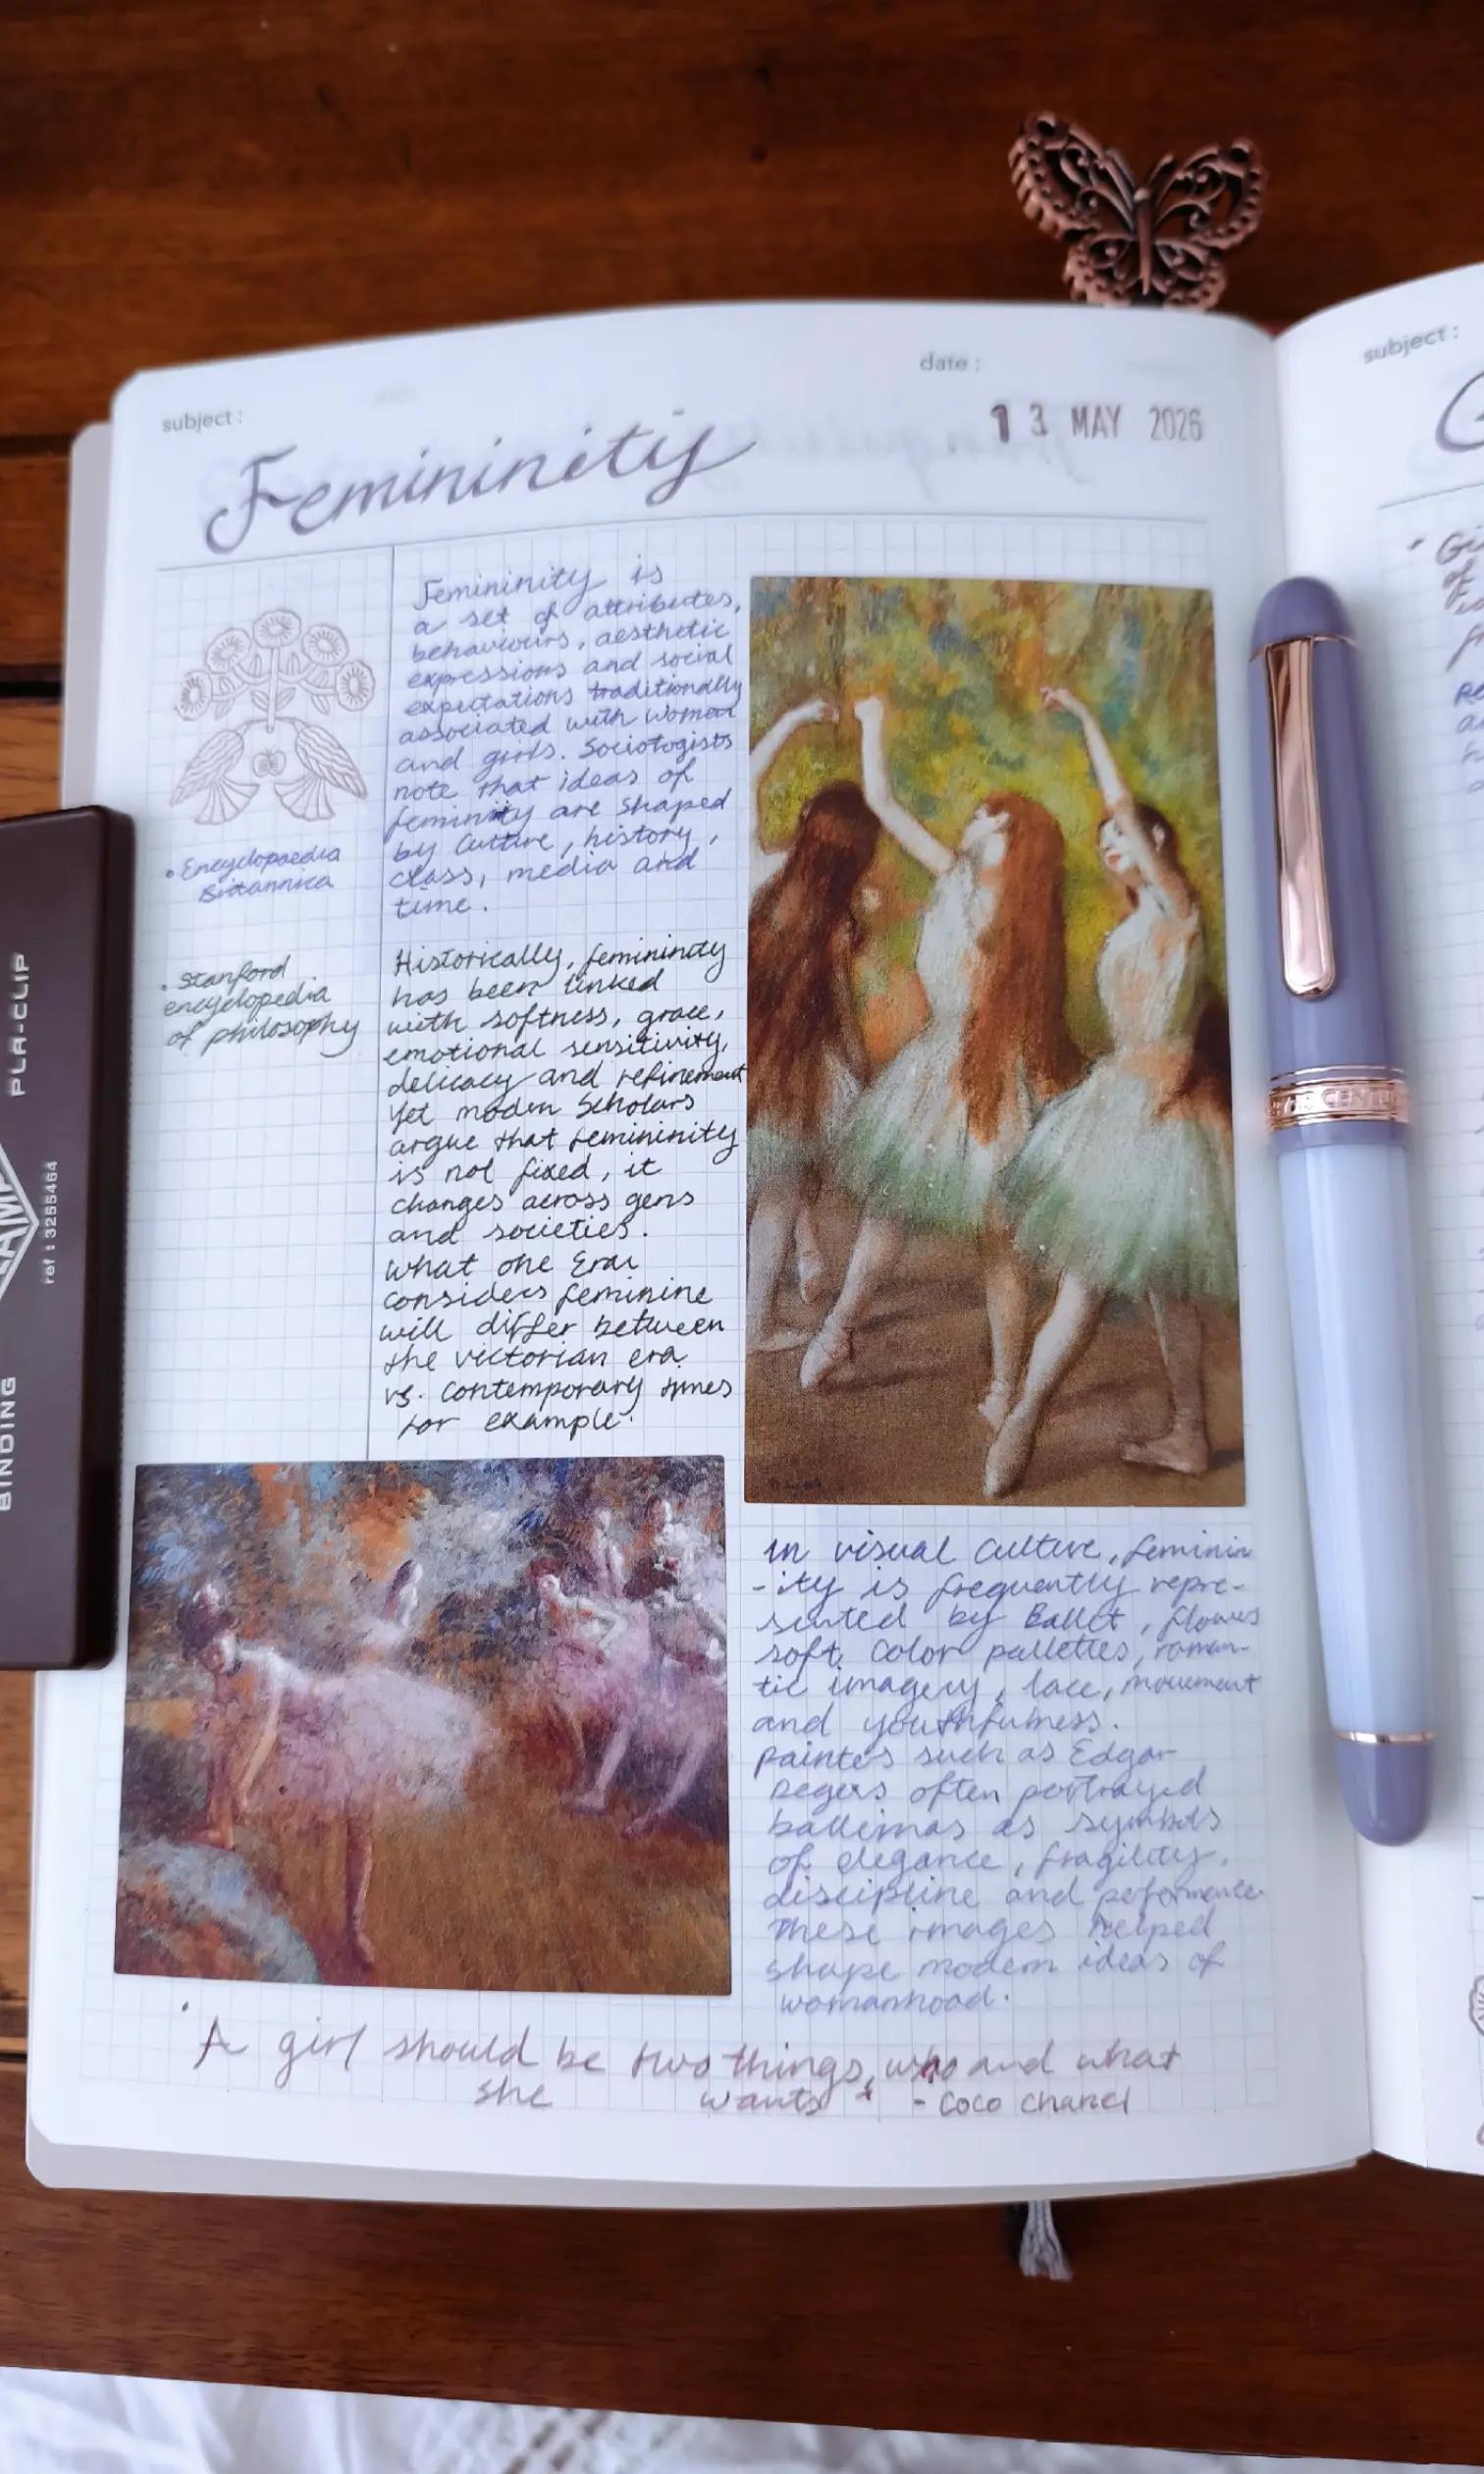 subject :
date :
13 MAY 2026
Femininity
Femininity is
a set of attributes,
behaviours, aesthetic
expressions and social
expectations traditionally
associated with woman
and girls. Sociologists
note that ideas of
femininity are shaped
by Culture, history,
class, media and
time.
• Encyclopaedia
Britannica
Historically, femininity
has been linked
with softness, grace,
emotional sensitivity,
delicacy and refinement
Yet modern Scholars
argue that femininity
is not fixed, it
changes across gens
and societies.
what one Era
considers feminine
will differ between
the victorian era
vs. contemporary times
for example.
• Stanford
encyclopedia
of philosophy
In visual culture, feminin
-ity is frequently repre-
sented by Ballet, flowers
soft color pallettes, roman-
tic imagery, lace, movement
and youthfulness.
painters such as Edgar
Degas often portrayed
ballerinas as symbols
of elegance, fragility,
discipline and peformance
These images helped
shape modern ideas of
womanhood.
"A girl should be two things, who and what
she wants" - Coco Chanel
subject :
PLA-CLIP
ref : 3255464
BINDING
CENTU